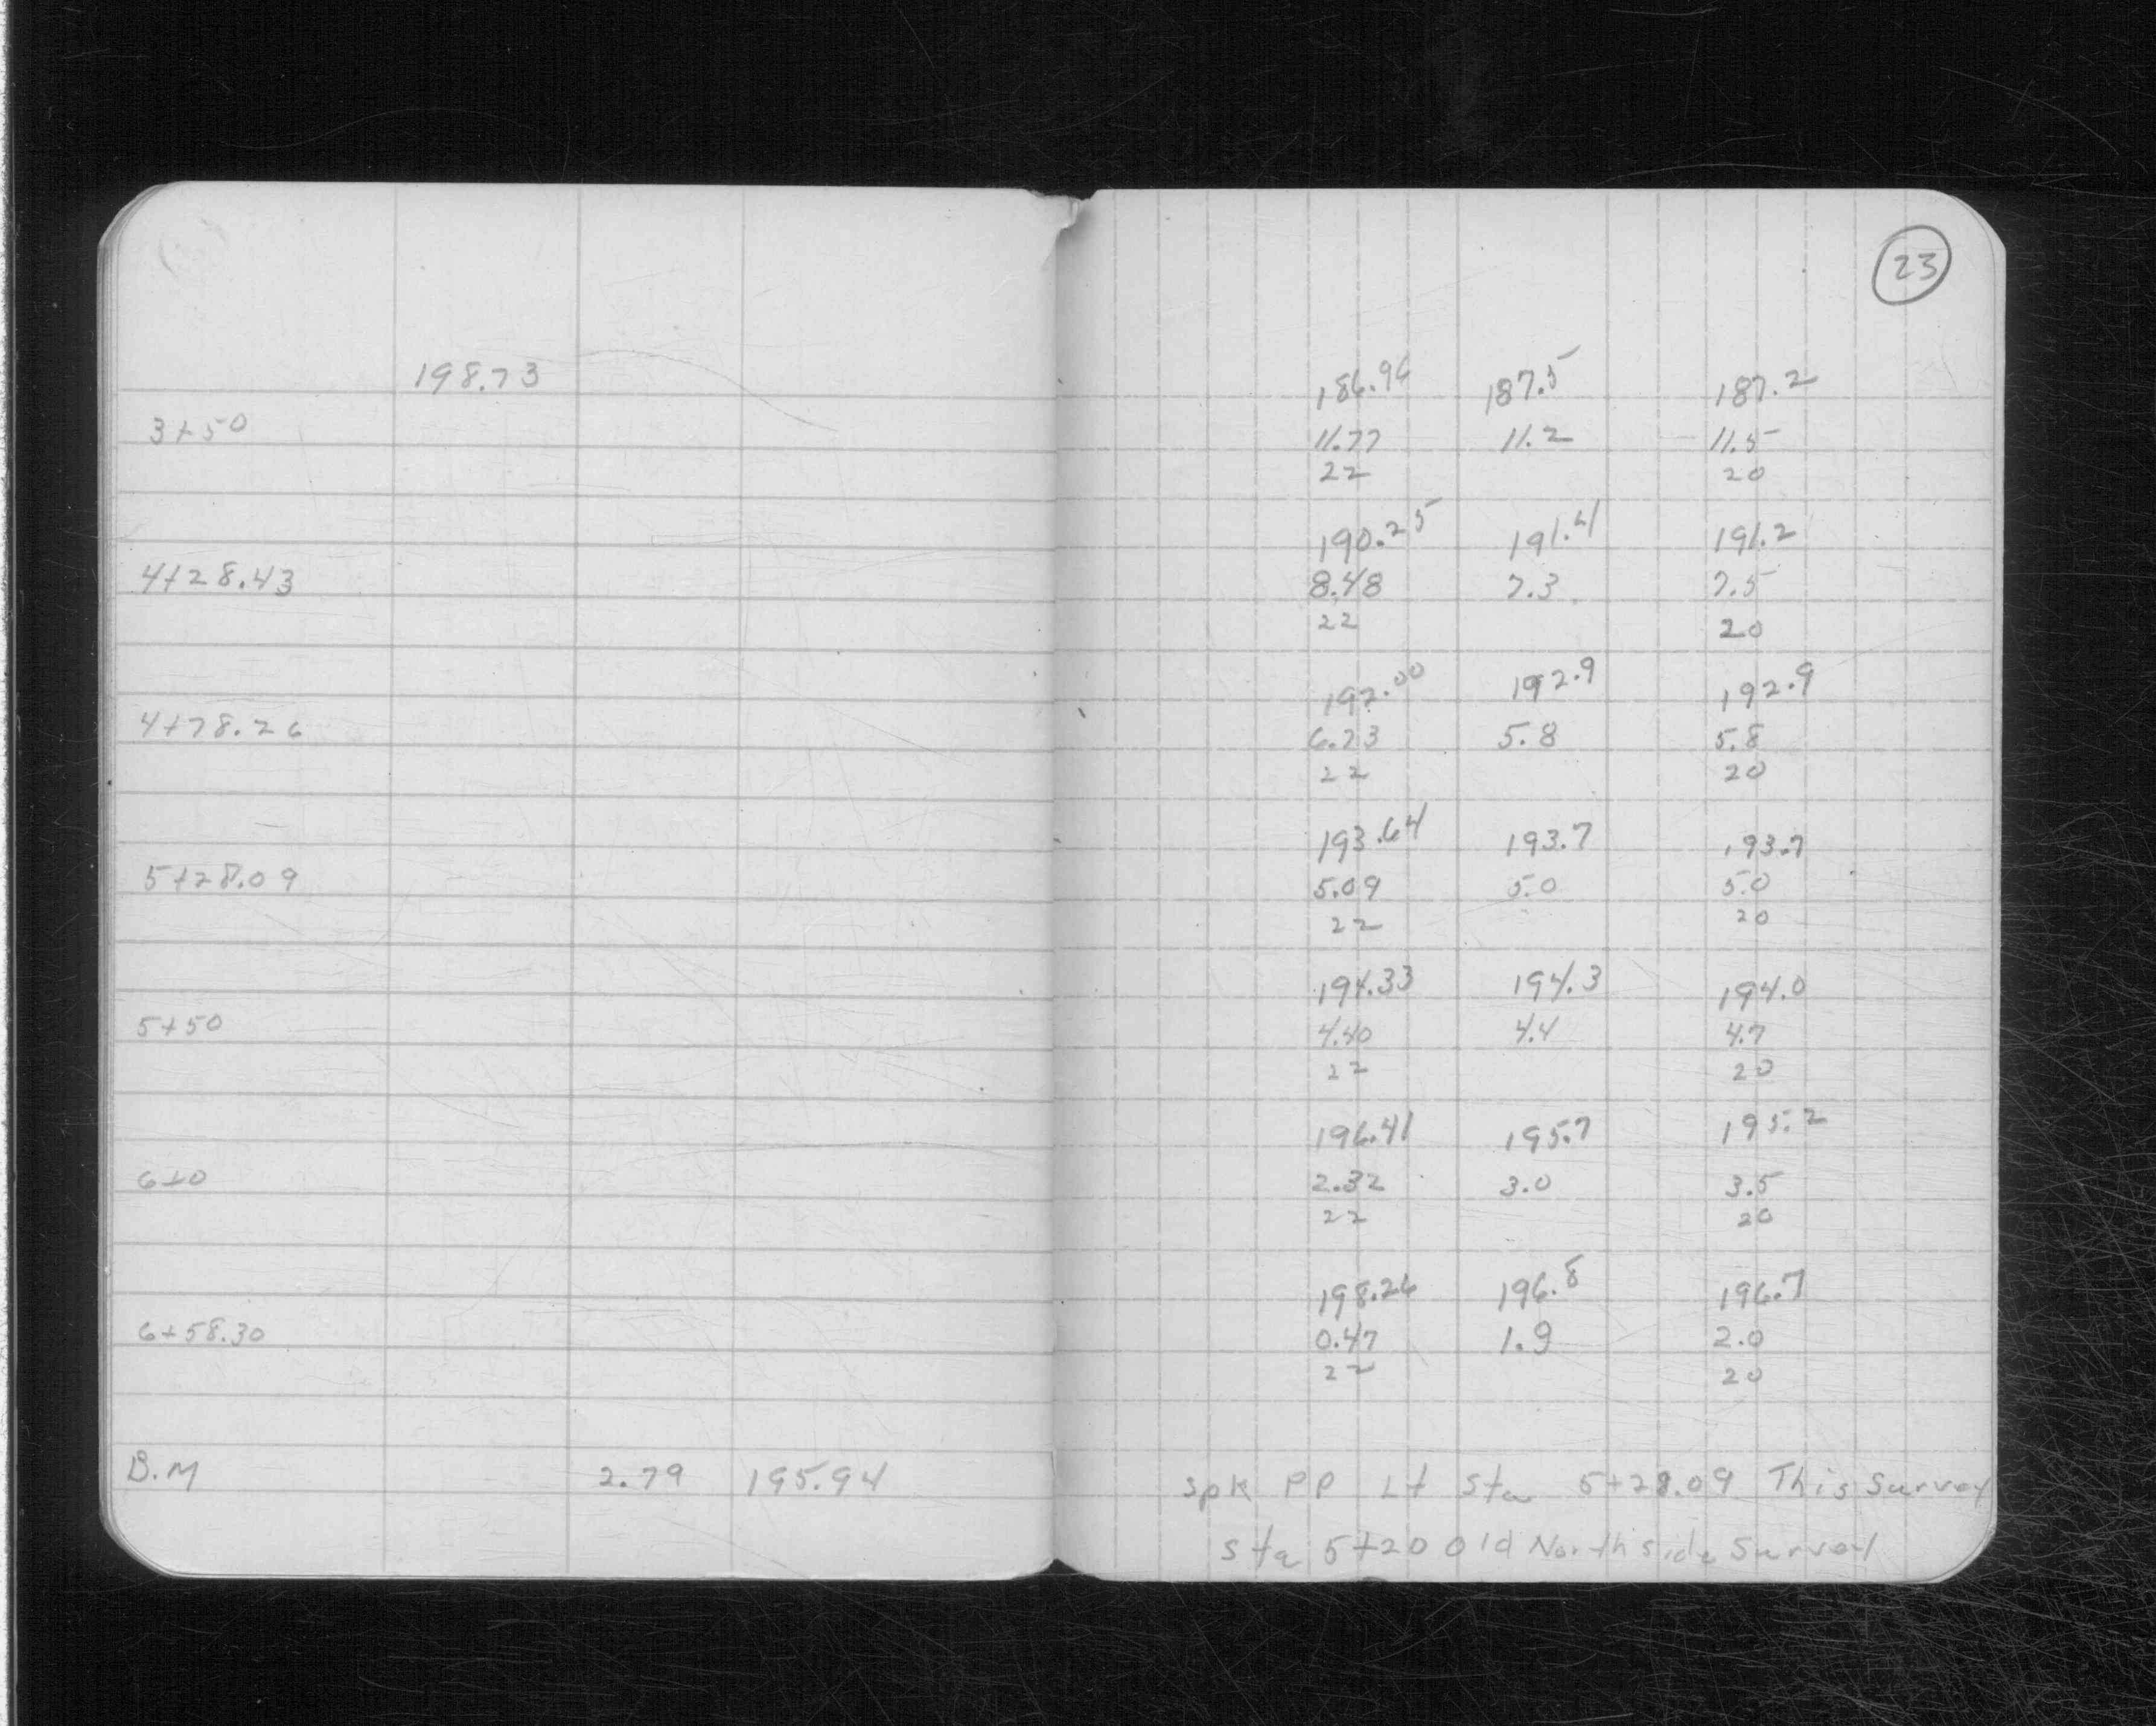 23
198.73 186.96 187.5 187.2
3+50 11.77 11.2 11.5
22 20
190.25 191.4 191.2
4+28.43 8.48 7.3 7.5
22 20
192.00 192.9 192.9
4+78.26 6.73 5.8 5.8
22 20
193.64 193.7 193.7
5+28.09 5.09 5.0 5.0
22 20
194.33 194.3 194.0
5+50 4.40 4.4 4.7
22 20
196.41 195.7 195.2
6+0 2.32 3.0 3.5
22 20
198.26 196.8 196.7
6+58.30 0.47 1.9 2.0
22 20
B.M 2.79 195.94 Spk PP Lt Sta 5+28.09 This Survey
Sta 5+20 Old North side Survey